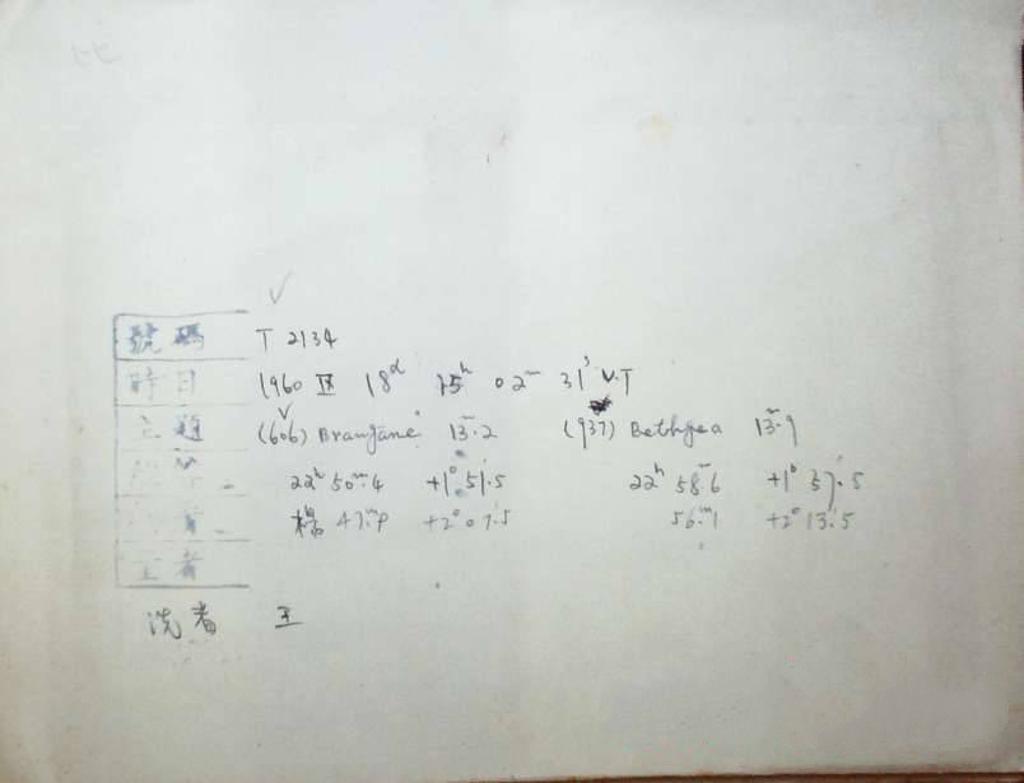 號碼 T 2134
時日 1960 IX 18ᵈ 15ʰ 02ᵐ 31ˢ U.T
主題 (606) Brangäne 13ᵐ.2 (937) Bethgea 13ᵐ.9
22ʰ 50ᵐ.4 +1° 51'.5 22ʰ 58ᵐ.6 +1° 37'.5
47ᵐ.9 +2° 07'.5 56ᵐ.1 +2° 13'.5
者
洗者 王